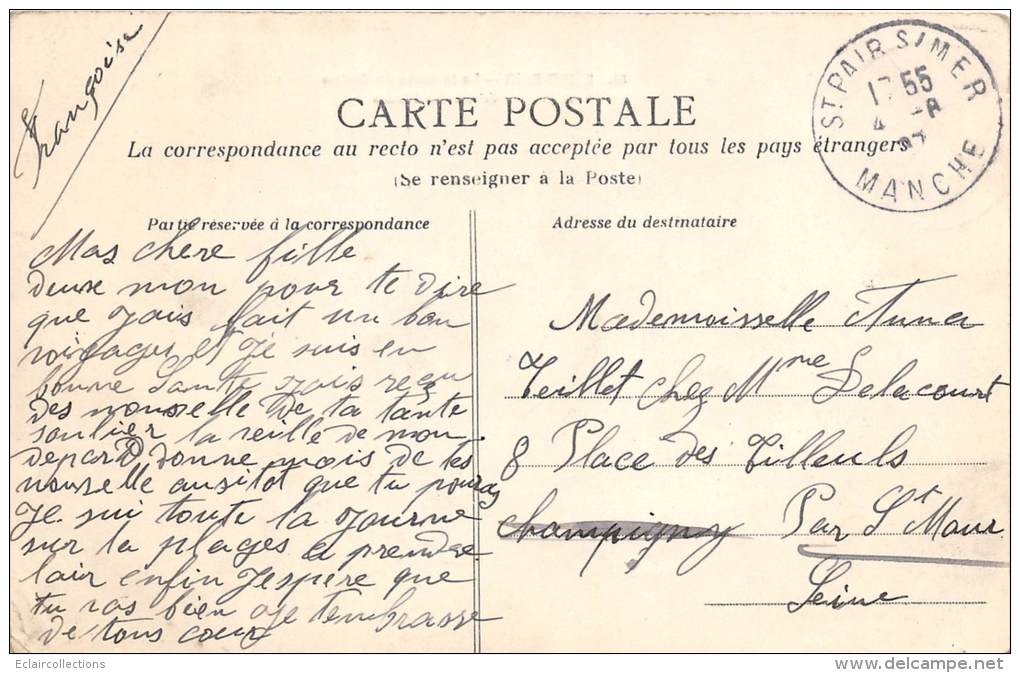 Françoise
CARTE POSTALE
La correspondance au recto n'est pas acceptée par tous les pays étrangers
(Se renseigner à la Poste)
ST PAIR S/MER
17 55
4 -8
MANCHE
Partie réservée à la correspondance
Mas chere fille
deuse mon pour te dire
que jais fait un bon
voigages et je suis en
bonne Sante jais reçu
des nouvelle de ta tante
soulier la veille de mon
depard donne mois de tes
nouvelle ausitot que tu pouras
Je sui toute la journe
sur la plages a prendre
lair enfin J'espere que
tu vas bien je tembrasse
de tous coeur
Adresse du destinataire
Mademoisselle Anna
Teillet chez Mme Delacourt
8 Place des Tilleuls
Champigny Par St Maur
Seine
Eclaircollections
www.delcampe.net